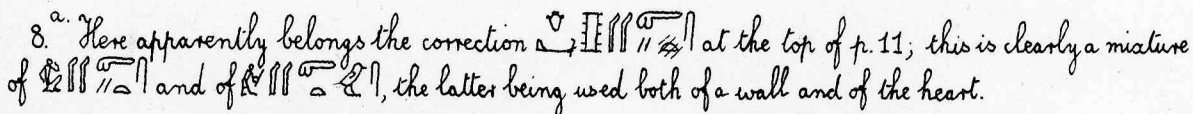 8.ª· Here apparently belongs the correction at the top of p. 11; this is clearly a mixture
of and of , the latter being used both of a wall and of the heart.